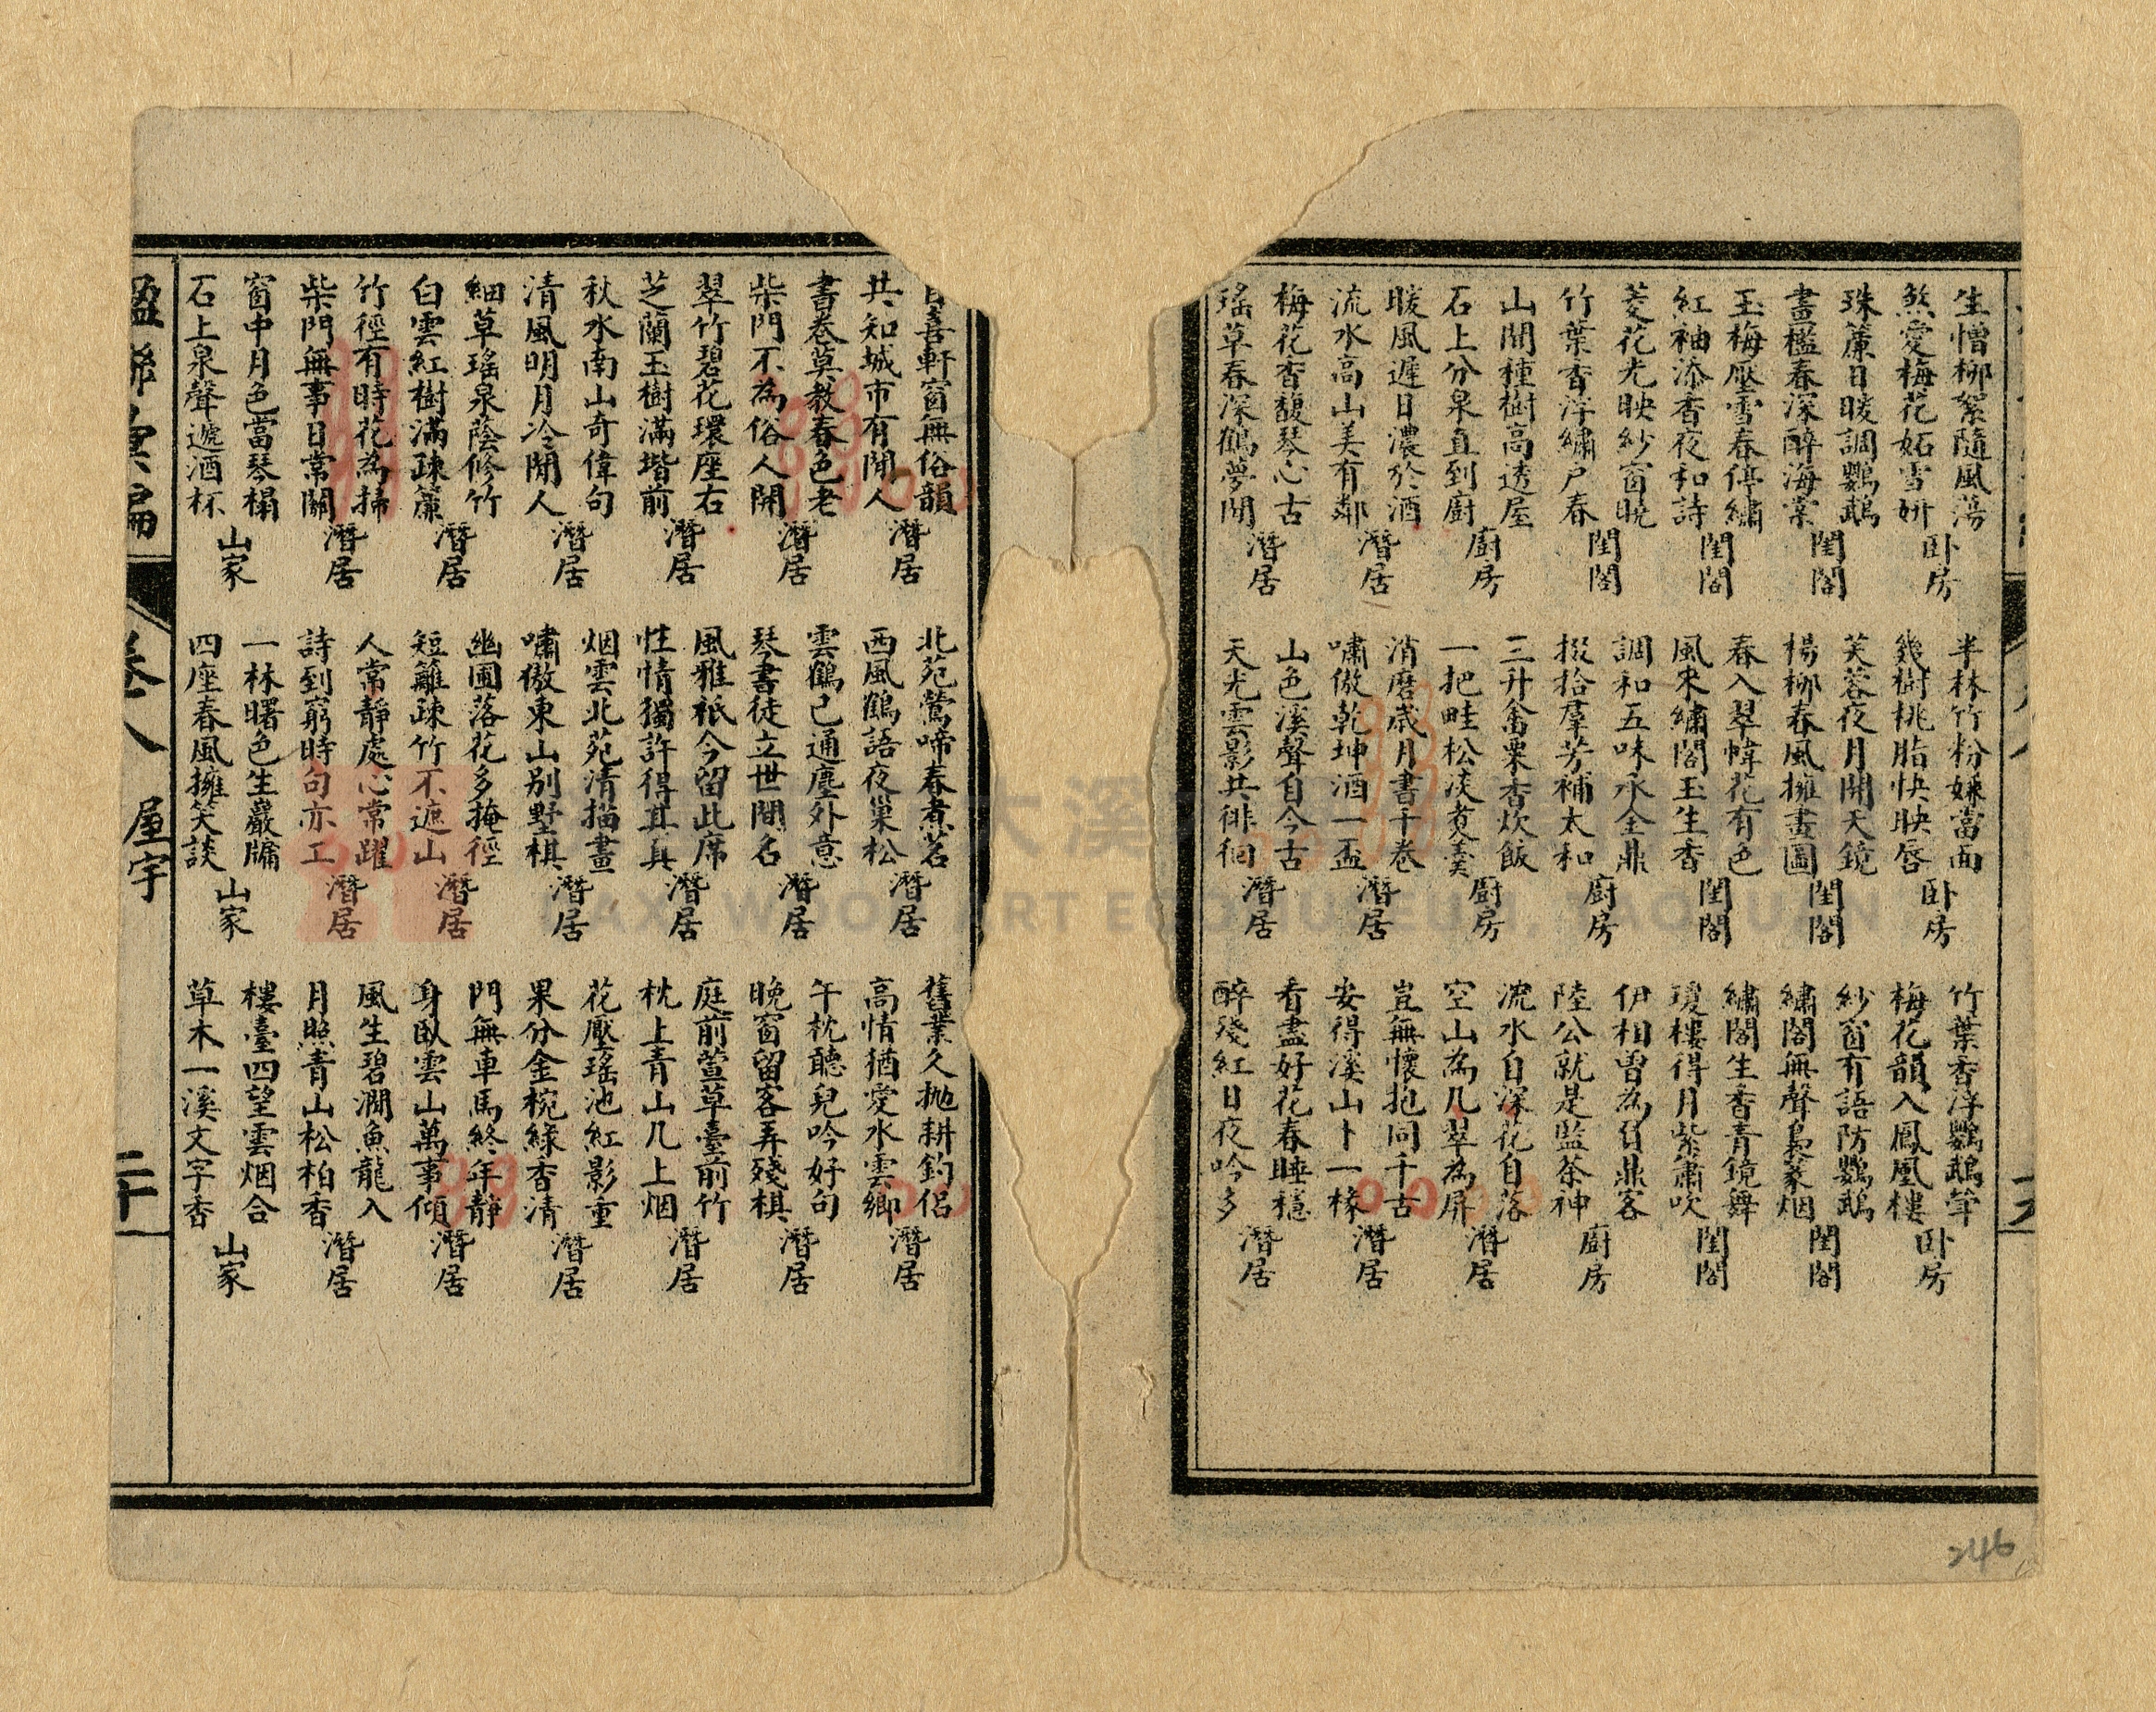 生憎柳絮隨風蕩
煞愛梅花妬雪妍
卧房
珠簾日暖調鸚鵡
畫檻春深醉海棠
閨閣
玉梅壓雪春停繡
紅袖添香夜和詩
閨閣
菱花光映紗窗曉
竹葉香浮繡戶春
閨閣
山間種樹高透屋
石上分泉直到廚
廚房
暖風遲日濃於酒
流水高山美有鄰
潛居
梅花香馥琴心古
瑤草春深鶴夢閒
潛居
半林竹粉嫌當面
幾樹桃脂快映唇
卧房
芙蓉夜月開天鏡
楊柳春風擁畫圖
閨閣
春入翠幃花有色
風來繡閣玉生香
閨閣
調和五味永全鼎
掇拾羣芳補太和
廚房
三升畬粟香炊飯
一把畦松淡煑羹
廚房
消磨歲月書千卷
嘯傲乾坤酒一盃
潛居
山色溪聲自今古
天光雲影共徘徊
潛居
竹葉香浮鸚鵡斝
梅花韻入鳳凰樓
卧房
紗窗有語防鸚鵡
繡閣無聲裊篆烟
閨閣
繡閣生香青鏡舞
瓊樓得月紫簫吹
閨閣
伊相曾為負鼎客
陸公就是監茶神
廚房
流水自深花自落
空山為几翠為屏
潛居
豈無懷抱同千古
安得溪山卜一椽
潛居
看盡好花春睡穩
醉殘紅日夜吟多
潛居
喜軒窗無俗韻
共知城市有閒人
潛居
書卷莫教春色老
柴門不為俗人開
潛居
翠竹碧花環座右
芝蘭玉樹滿堦前
潛居
秋水南山奇偉句
清風明月冷閒人
潛居
細草瑤泉蔭修竹
白雲紅樹滿疎簾
潛居
竹徑有時花為掃
柴門無事日常關
潛居
窗中月色當琴榻
石上泉聲遞酒杯
山家
北苑鶯啼春煮茗
西風鶴語夜巢松
潛居
雲鶴已通塵外意
琴書徒立世間名
潛居
風雅祇今留此席
性情獨許得其真
潛居
烟雲北苑清描畫
嘯傲東山別墅棋
潛居
幽圃落花多掩徑
短籬疎竹不遮山
潛居
人常靜處心常躍
詩到窮時句亦工
潛居
一林曙色生巖牗
四座春風擁笑談
山家
舊業久拋耕釣侶
高情猶愛水雲鄉
潛居
午枕聽兒吟好句
晚窗留客弄殘棋
潛居
庭前萱草臺前竹
枕上青山几上烟
潛居
花壓瑤池紅影重
果分金椀綠香清
潛居
門無車馬終年靜
身臥雲山萬事傾
潛居
風生碧澗魚龍入
月照青山松柏香
潛居
樓臺四望雲烟合
草木一溪文字香
山家
楹聯彙編
卷八
屋宇
二十
246